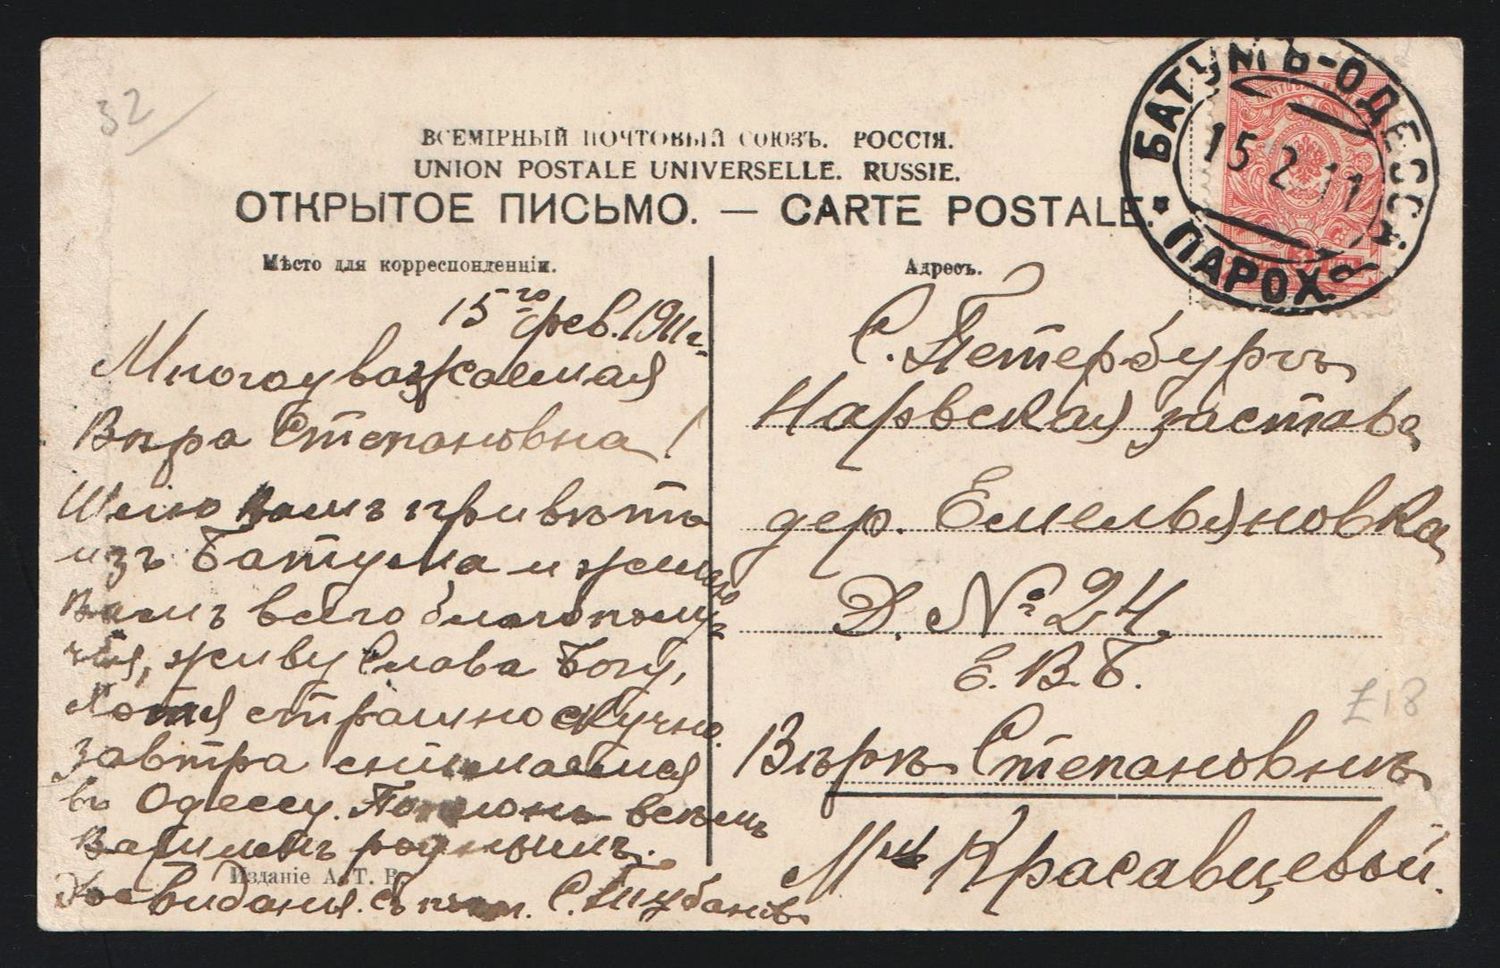 32
ВСЕМІРНЫЙ ПОЧТОВЫЙ СОЮЗЪ. РОССІЯ.
UNION POSTALE UNIVERSELLE. RUSSIE.
ОТКРЫТОЕ ПИСЬМО. — CARTE POSTALE.
БАТУМЪ-ОДЕССА
15 2 11
ПАРОХ.
Мѣсто для корреспонденціи.
15го фев. 1911 г.
Многоуважаемая
Вѣра Степановна!
Шлю Вамъ привѣтъ
изъ Батума и желаю
Вамъ всего благополу-
чія, живу Слава Богу,
Хотя страшно скучно.
завтра снимаемся
въ Одессу. Поклонъ всѣмъ
Вашимъ роднымъ.
Досвиданія. Съ С.
Изданіе А. Т. В.
Адресъ.
С. Петербургъ
Нарвская застава
дер. Емельяновка
Д. № 24.
Е. В. Б.
£18
Вѣрѣ Степановнѣ
Красавцевой.